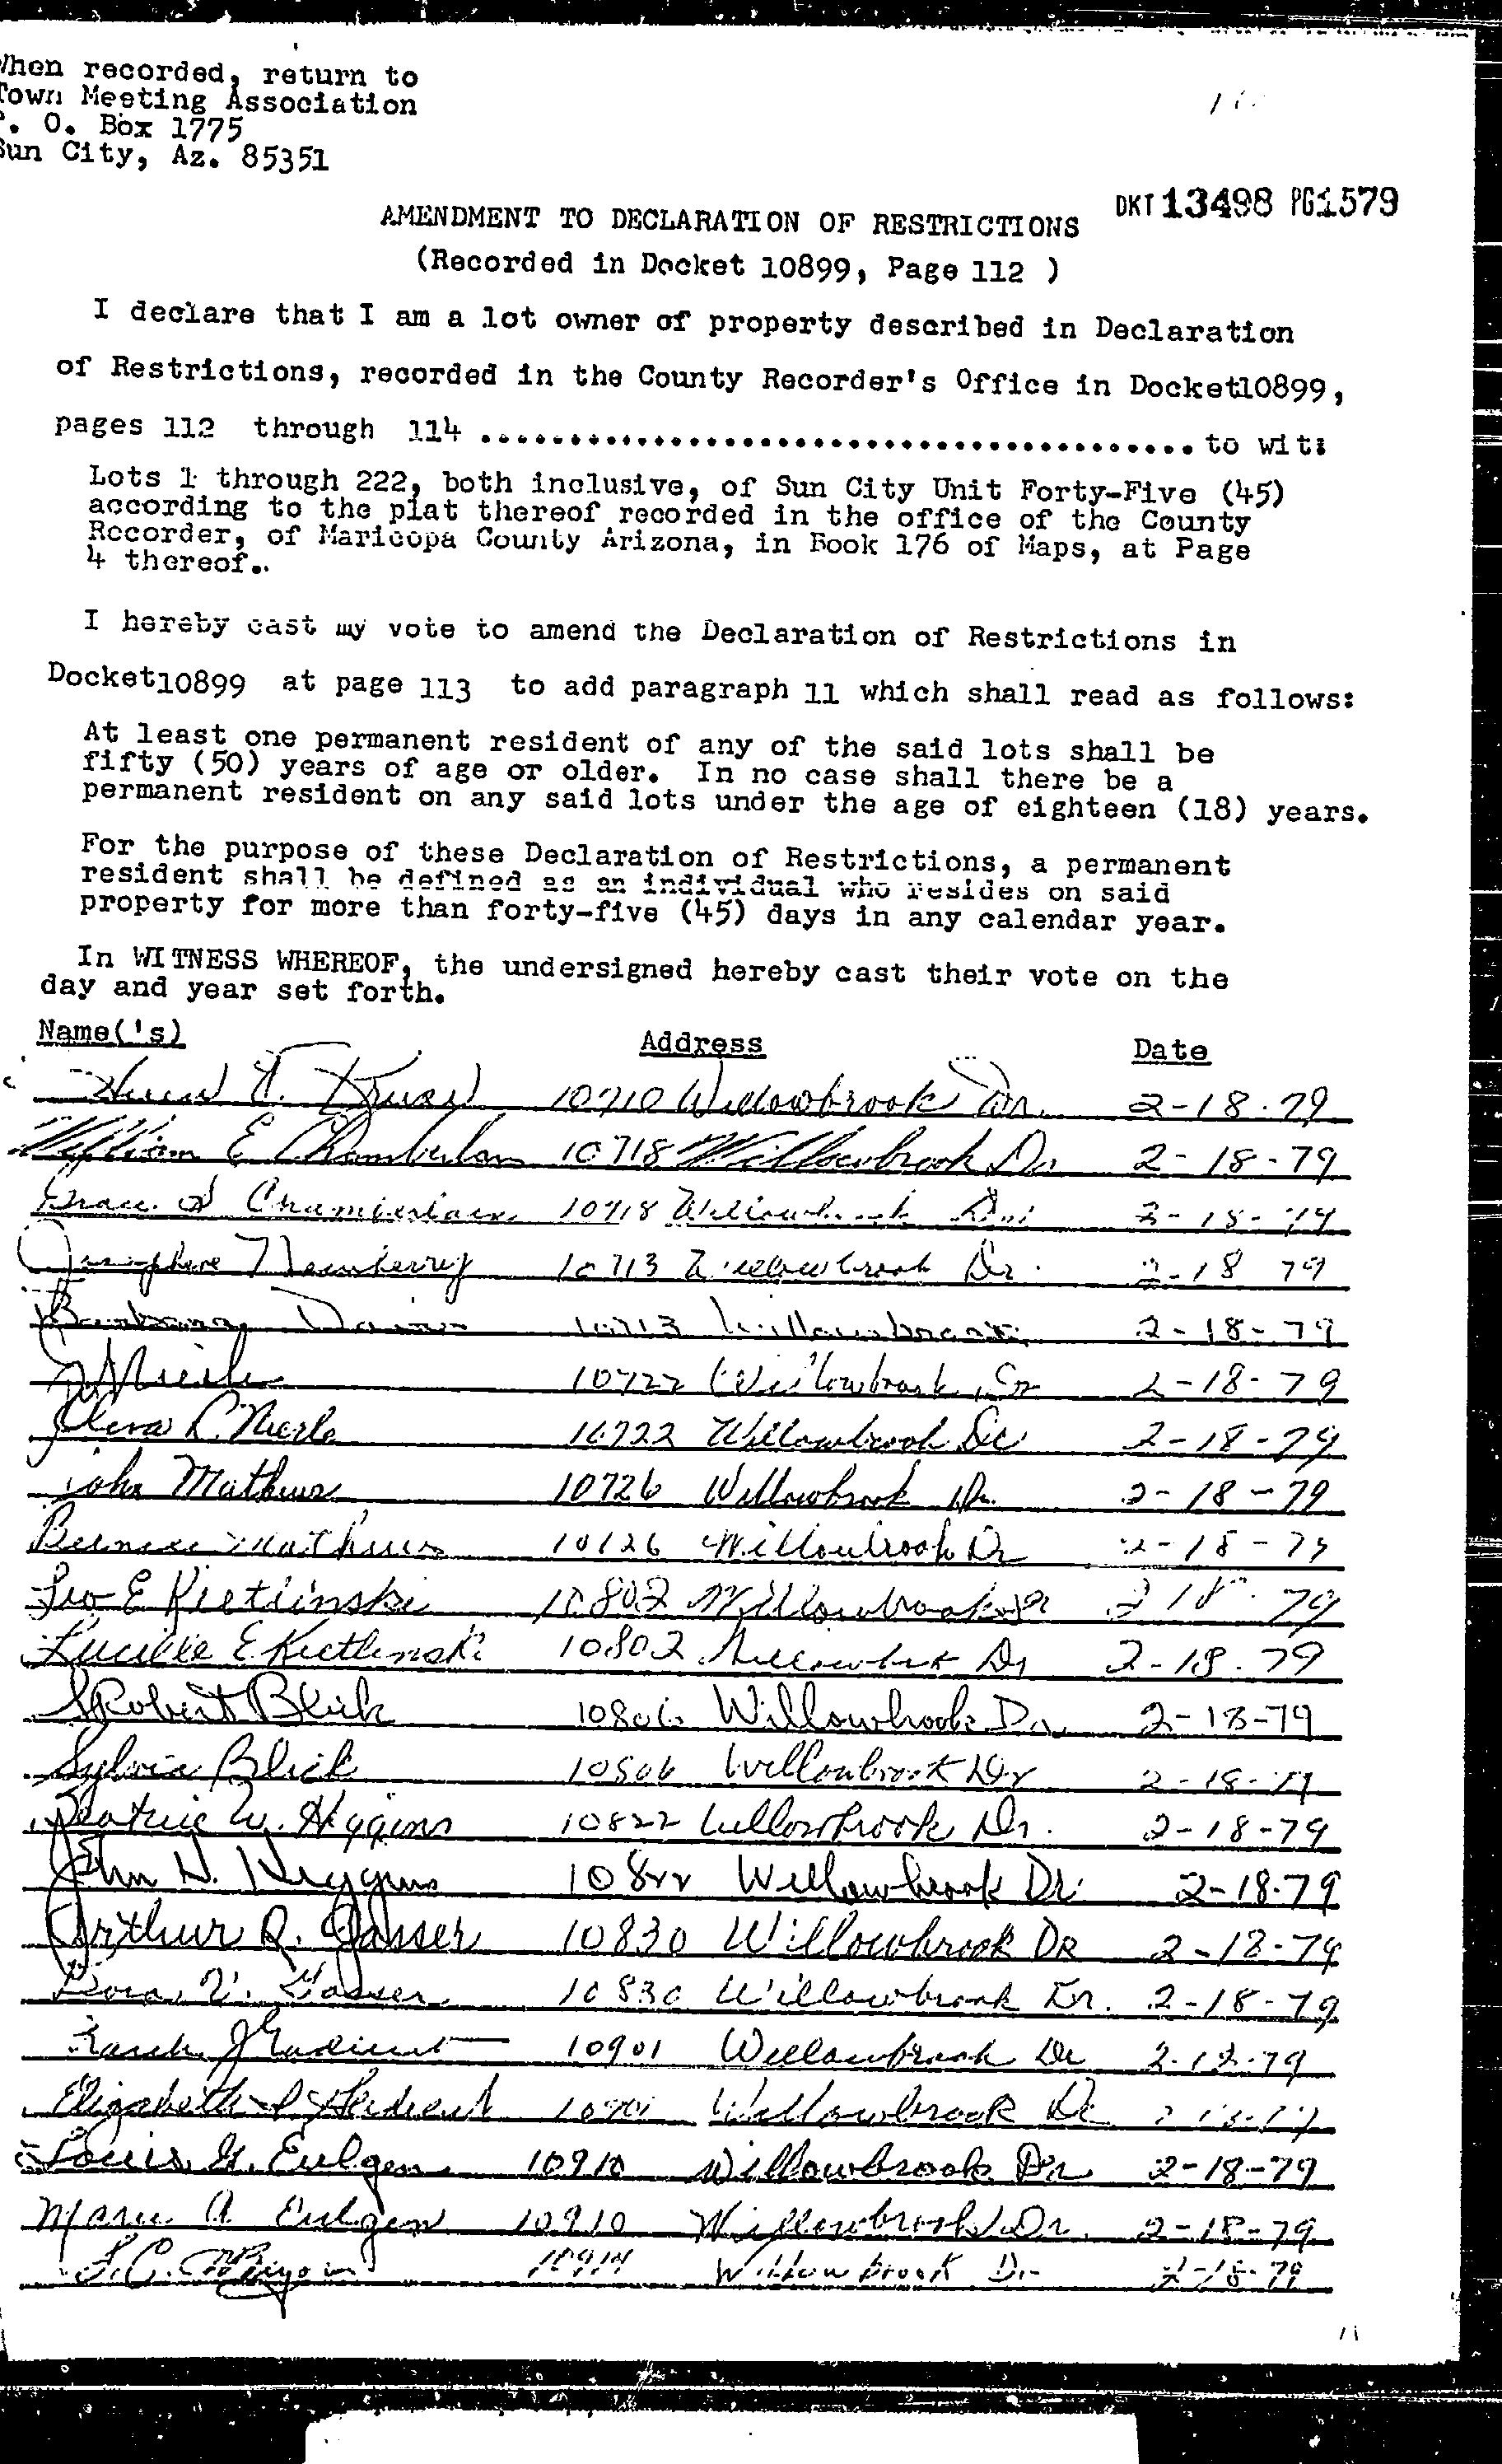 When recorded, return to
Town Meeting Association
P. O. Box 1775
Sun City, Az. 85351
DKT 13498 PG 1579
AMENDMENT TO DECLARATION OF RESTRICTIONS
(Recorded in Docket 10899, Page 112 )
I declare that I am a lot owner of property described in Declaration
of Restrictions, recorded in the County Recorder's Office in Docket10899,
pages 112 through 114 ................................................ to wit:
Lots 1 through 222, both inclusive, of Sun City Unit Forty-Five (45)
according to the plat thereof recorded in the office of the County
Recorder, of Maricopa County Arizona, in Book 176 of Maps, at Page
4 thereof..
I hereby cast my vote to amend the Declaration of Restrictions in
Docket10899 at page 113 to add paragraph 11 which shall read as follows:
At least one permanent resident of any of the said lots shall be
fifty (50) years of age or older. In no case shall there be a
permanent resident on any said lots under the age of eighteen (18) years.
For the purpose of these Declaration of Restrictions, a permanent
resident shall be defined as an individual who resides on said
property for more than forty-five (45) days in any calendar year.
In WITNESS WHEREOF, the undersigned hereby cast their vote on the
day and year set forth.
Name('s) Address Date
10710 Willowbrook Dr. 2-18-79
William E Chamberlain 10718 Willowbrook Dr 2-18-79
Chamberlain 10718 Willowbrook 2-18-79
Josephine Newberry 10713 Willowbrook Dr. 2-18 79
Barbara 10713 Willowbrook 2-18-79
10722 Willowbrook Dr 2-18-79
10722 Willowbrook Dr 2-18-79
John Mathews 10726 Willowbrook Dr. 2-18-79
Bernice Mathews 10726 Willowbrook Dr 2-18-79
Leo E Kietlinski 10802 Willowbrook Dr 2 18 79
Lucille E Kietlinski 10802 Willowbrook Dr 2-18-79
S Robert Blick 10806 Willowbrook Dr. 2-18-79
Sylvia Blick 10806 Willowbrook Dr 2-18-79
Beatrice W. Higgins 10822 Willowbrook Dr. 2-18-79
John W. Higgins 10822 Willowbrook Dr. 2-18-79
Arthur R. Gasser 10830 Willowbrook DR 2-18-79
Dora V. Gasser 10830 Willowbrook Dr. 2-18-79
10901 Willowbrook Dr 2-18-79
Elizabeth 10901 Willowbrook Dr
Louis G. Eulgen 10910 Willowbrook Dr 2-18-79
Marie A Eulgen 10910 Willowbrook Dr. 2-18-79
10914 Willowbrook Dr 2-18-79